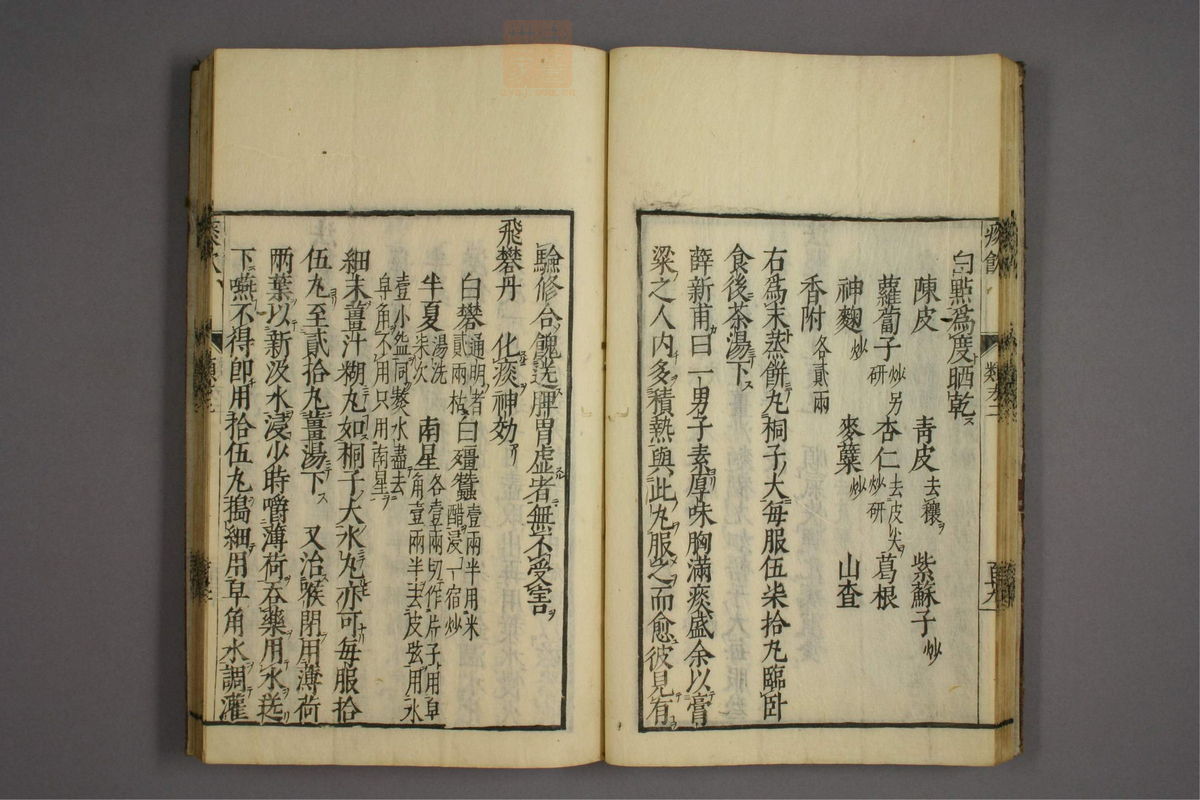 白點爲度晒乾
陳皮 青皮去穰 紫蘇子炒
蘿蔔子炒另研 杏仁去皮尖炒研 葛根
神麯炒 麥蘖炒 山査
香附各貳兩
右爲末蒸餅丸桐子大每服伍柒拾丸臨卧
食後茶湯下
薛新甫曰一男子素厚味胸滿痰盛余以膏
粱之人内多積熱與此丸服之而愈彼見有
驗修合餽送脾胃虚者無不受害
飛礬丹 化痰神効
白礬通明者貳兩枯 白殭蠶壹兩半用米醋浸一宿炒
半夏湯洗柒次 南星各壹兩切作片子用皁角壹兩半去皮弦用水
壹小盌同熬水盡去皁角不用只用南星
細末薑汁糊丸如桐子大水丸亦可每服拾
伍丸至貳拾丸薑湯下 又治喉閉用薄荷
兩葉以新汲水浸少時嚼薄荷吞藥用水送
下嚥不得即用拾伍丸搗細用皁角水調灌